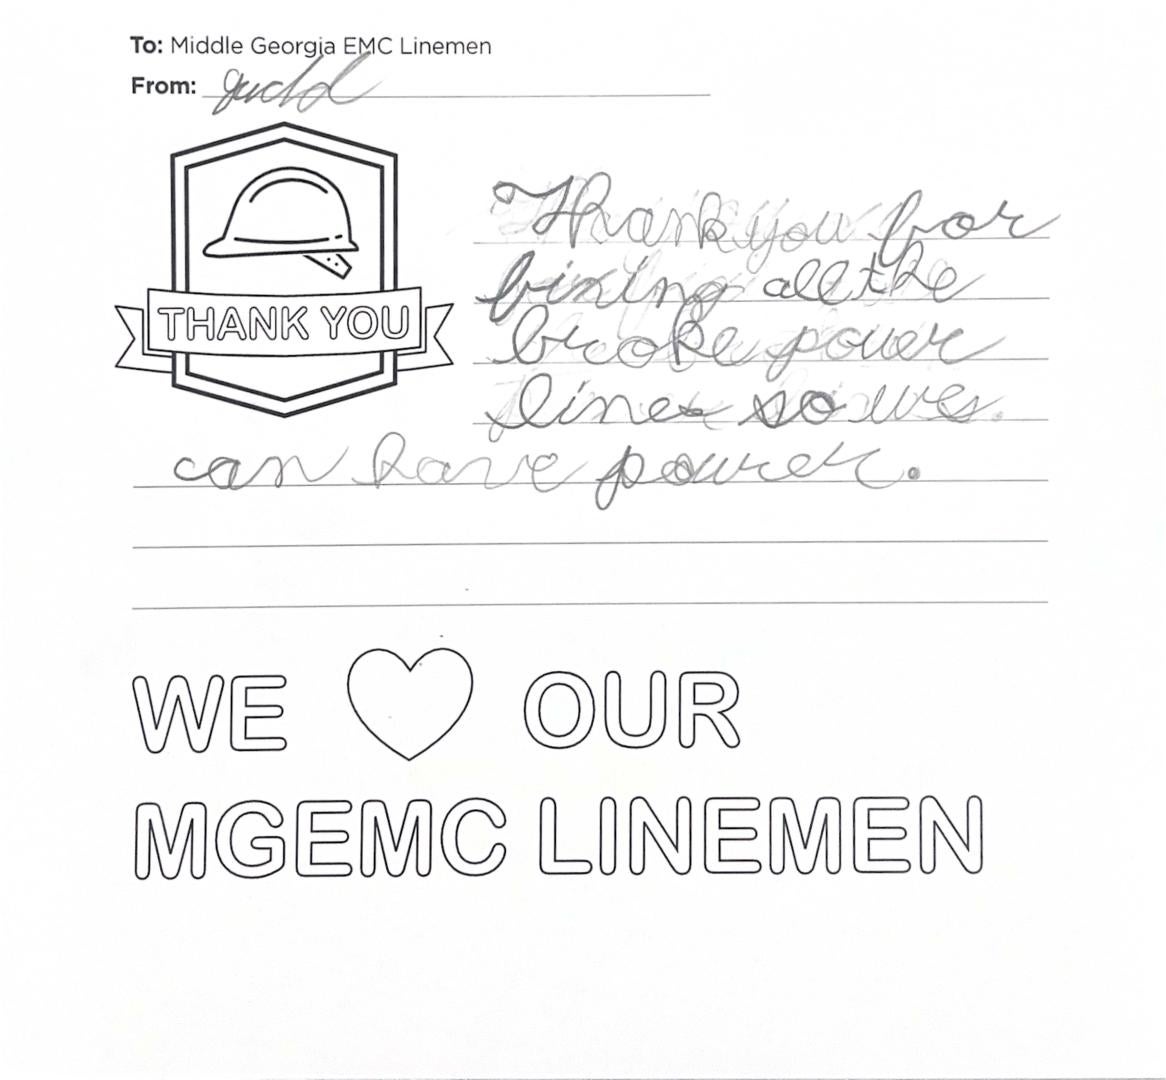 To: Middle Georgia EMC Linemen
From: Judd
THANK YOU
Thank you for
fixing all the
broke power
lines so we
can have power.
WE OUR
MGEMC LINEMEN